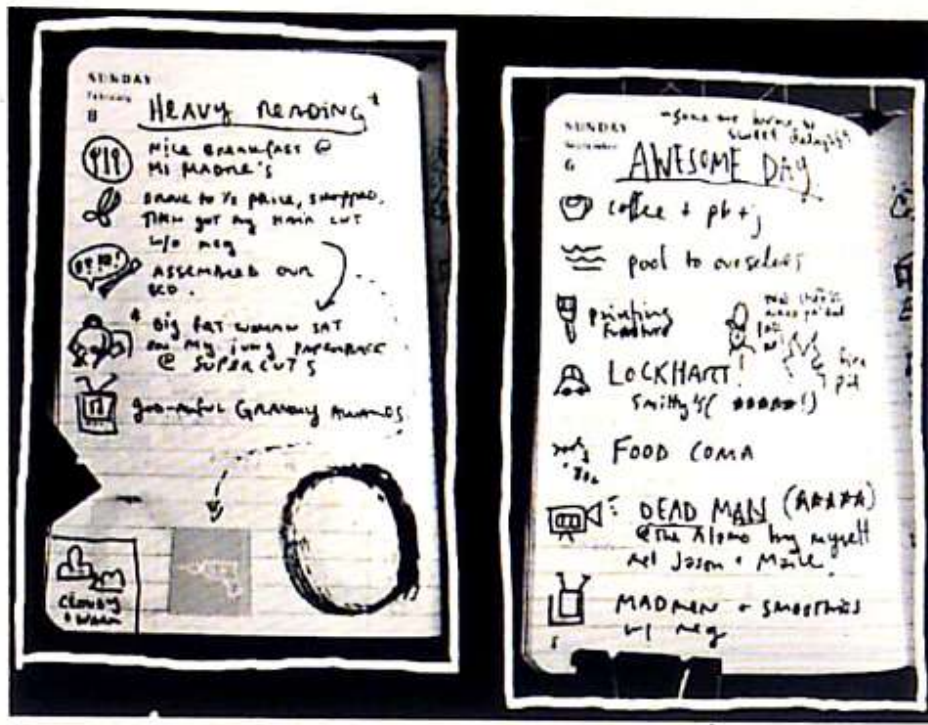 SUNDAY
February
8
HEAVY READING*
NICE BREAKFAST @
MI MADRE'S
DROVE TO ½ PRICE, SHOPPED,
THEN GOT MY HAIR CUT
W/O MEG
ASSEMBLED OUR
BED.
* BIG FAT WOMAN SAT
ON MY JUNG PAPERBACK
@ SUPERCUTS
GOD-AWFUL GRAMMY AWARDS
CLOUDY
+ WARM
SUNDAY
September
6
AWESOME DAY
coffee + pb + j
pool to ourselves
painting
furniture
fire
pit
LOCKHART!
Smitty's (★★★★★!)
FOOD COMA
DEAD MAN (★★★★★)
@ the Alamo by myself
met Jason +
MADMEN + SMOOTHIES
w/ meg